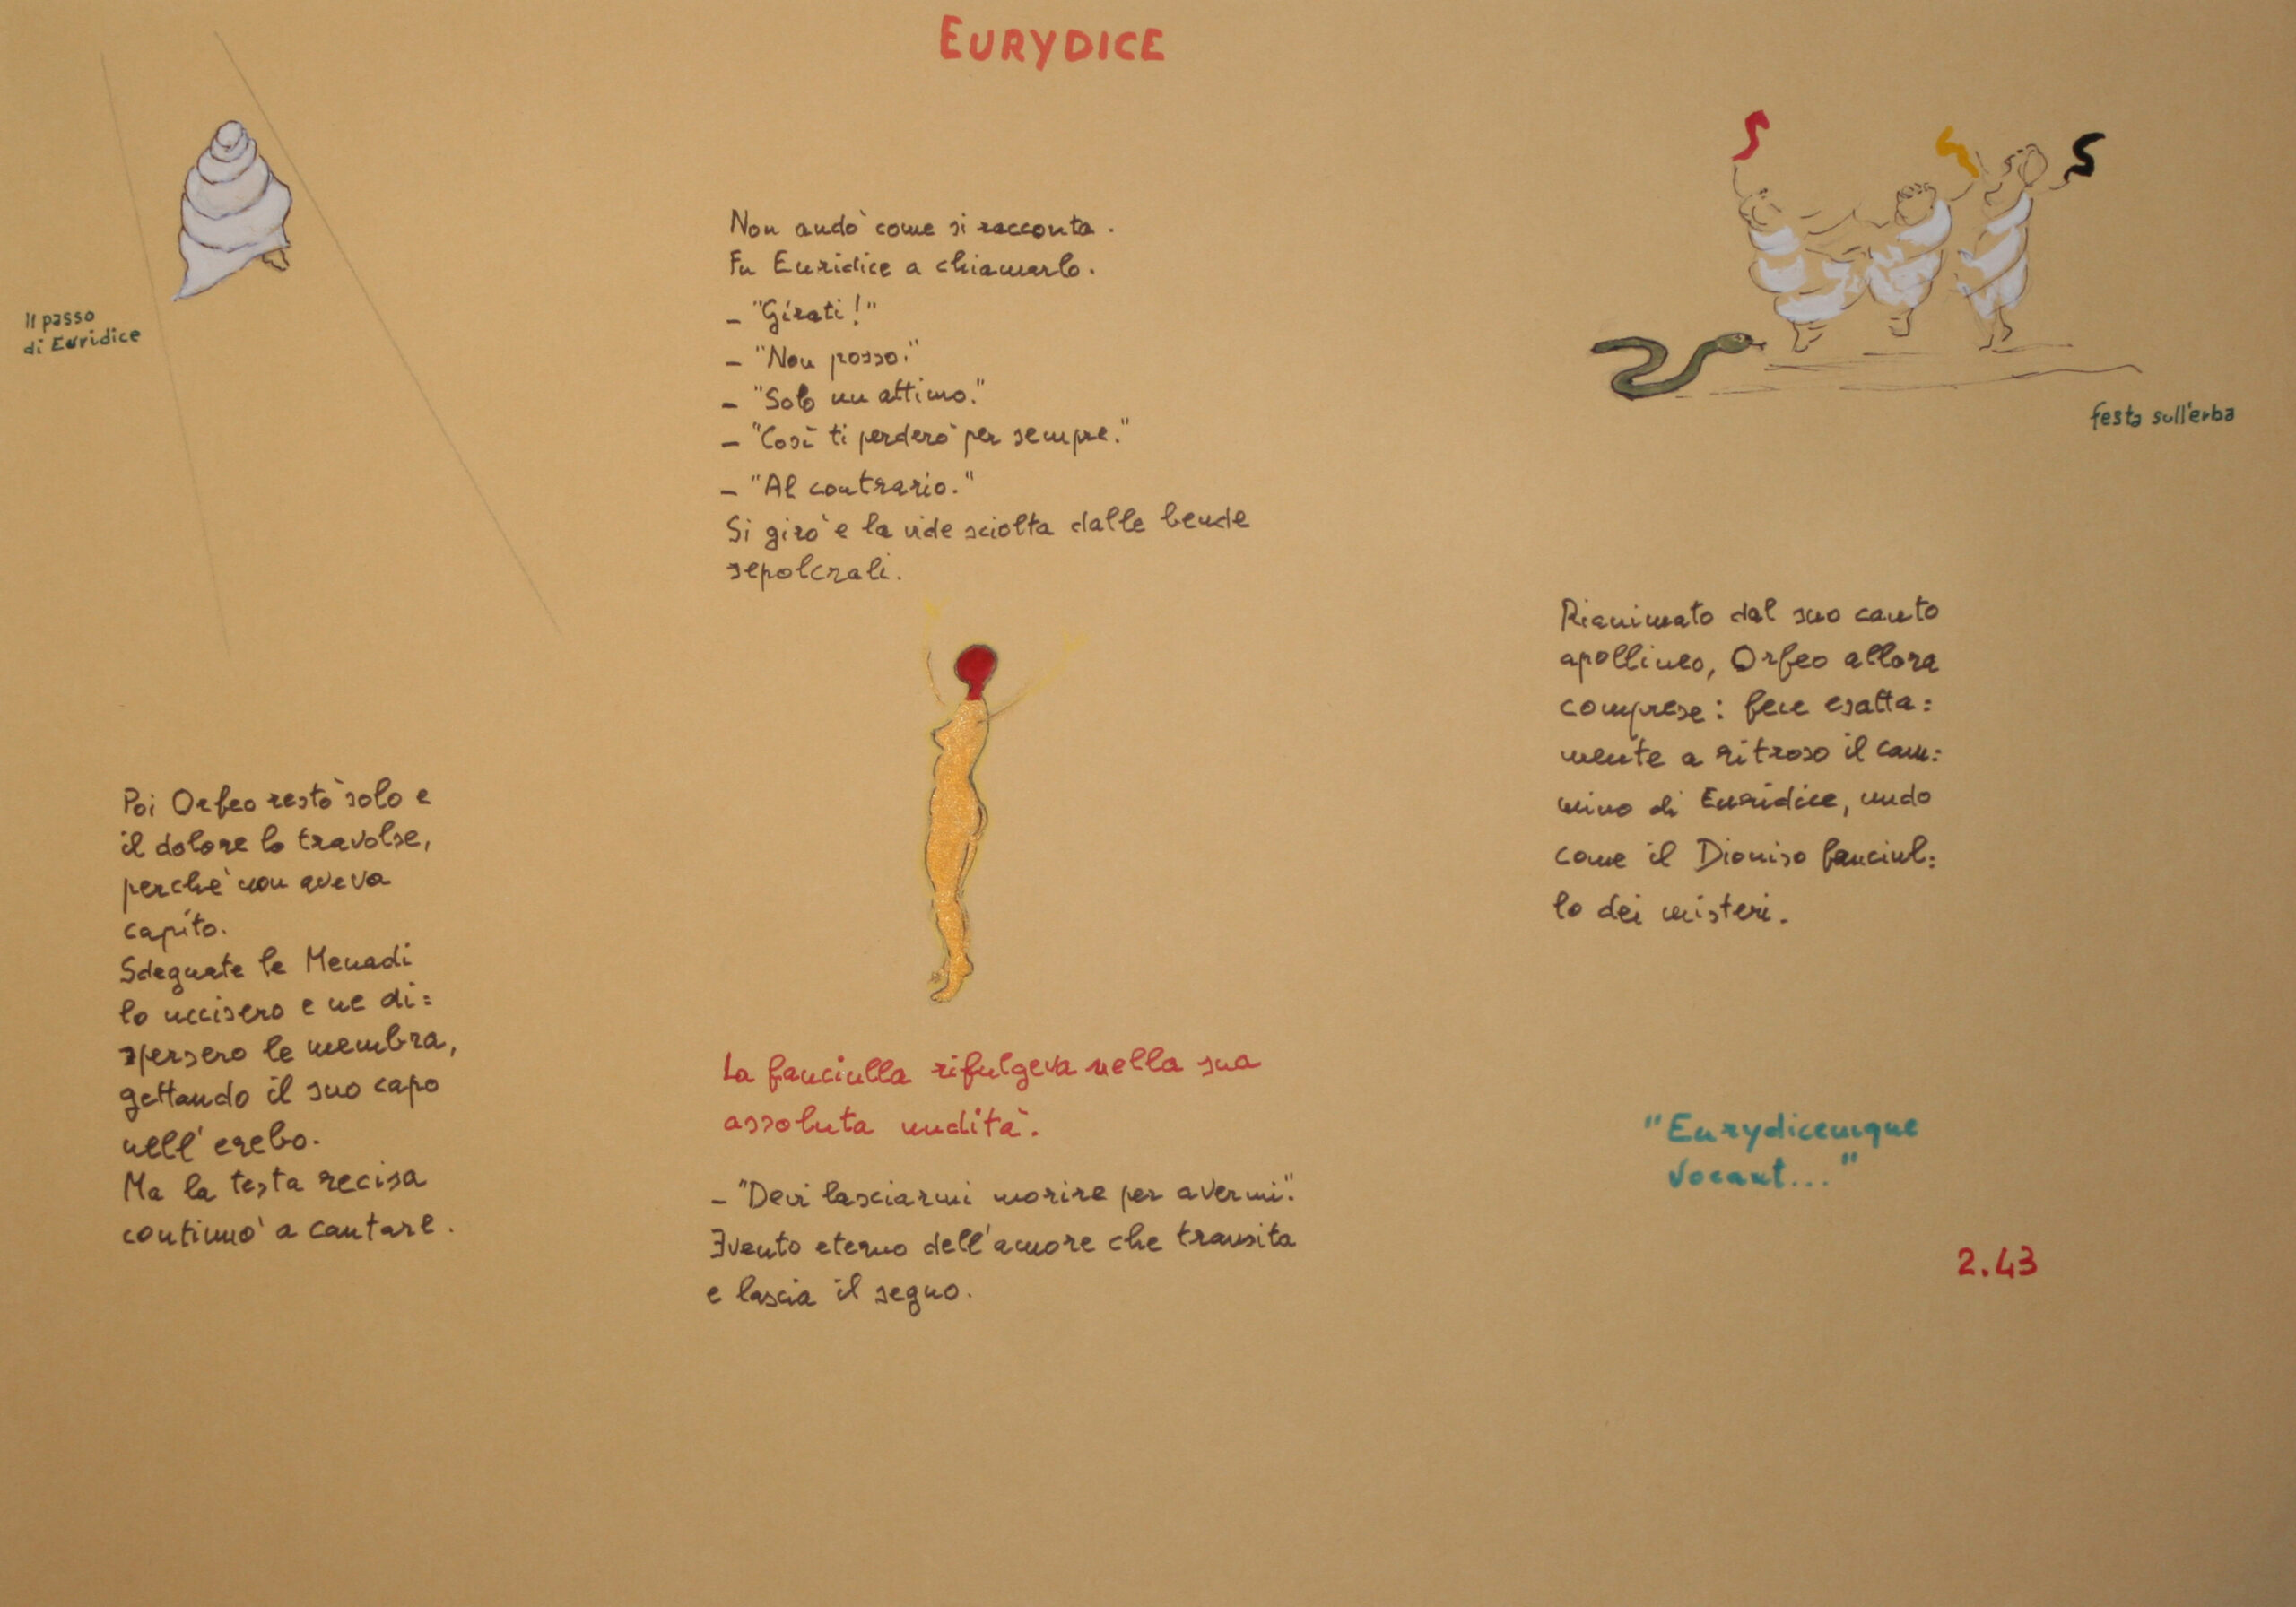 EURYDICE
Il passo
di Euridice
Non andò come si racconta.
Fu Euridice a chiamarlo.
– "Girati!"
– "Non posso."
– "Solo un attimo."
– "Così ti perderò per sempre."
– "Al contrario."
Si girò e la vide sciolta dalle bende
sepolcrali.
La fanciulla rifulgeva nella sua
assoluta nudità.
– "Devi lasciarmi morire per avermi".
Evento eterno dell'amore che transita
e lascia il segno.
Poi Orfeo restò solo e
il dolore lo travolse,
perchè non aveva
capito.
Sdegnate le Menadi
lo uccisero e ne di=
spersero le membra,
gettando il suo capo
nell'erebo.
Ma la testa recisa
continuò a cantare.
festa sull'erba
Rianimato dal suo canto
apollineo, Orfeo allora
comprese: fece esatta=
mente a ritroso il cam=
mino di Euridice, nudo
come il Dioniso fanciul=
lo dei misteri.
"Eurydicemque
vocant..."
2.43